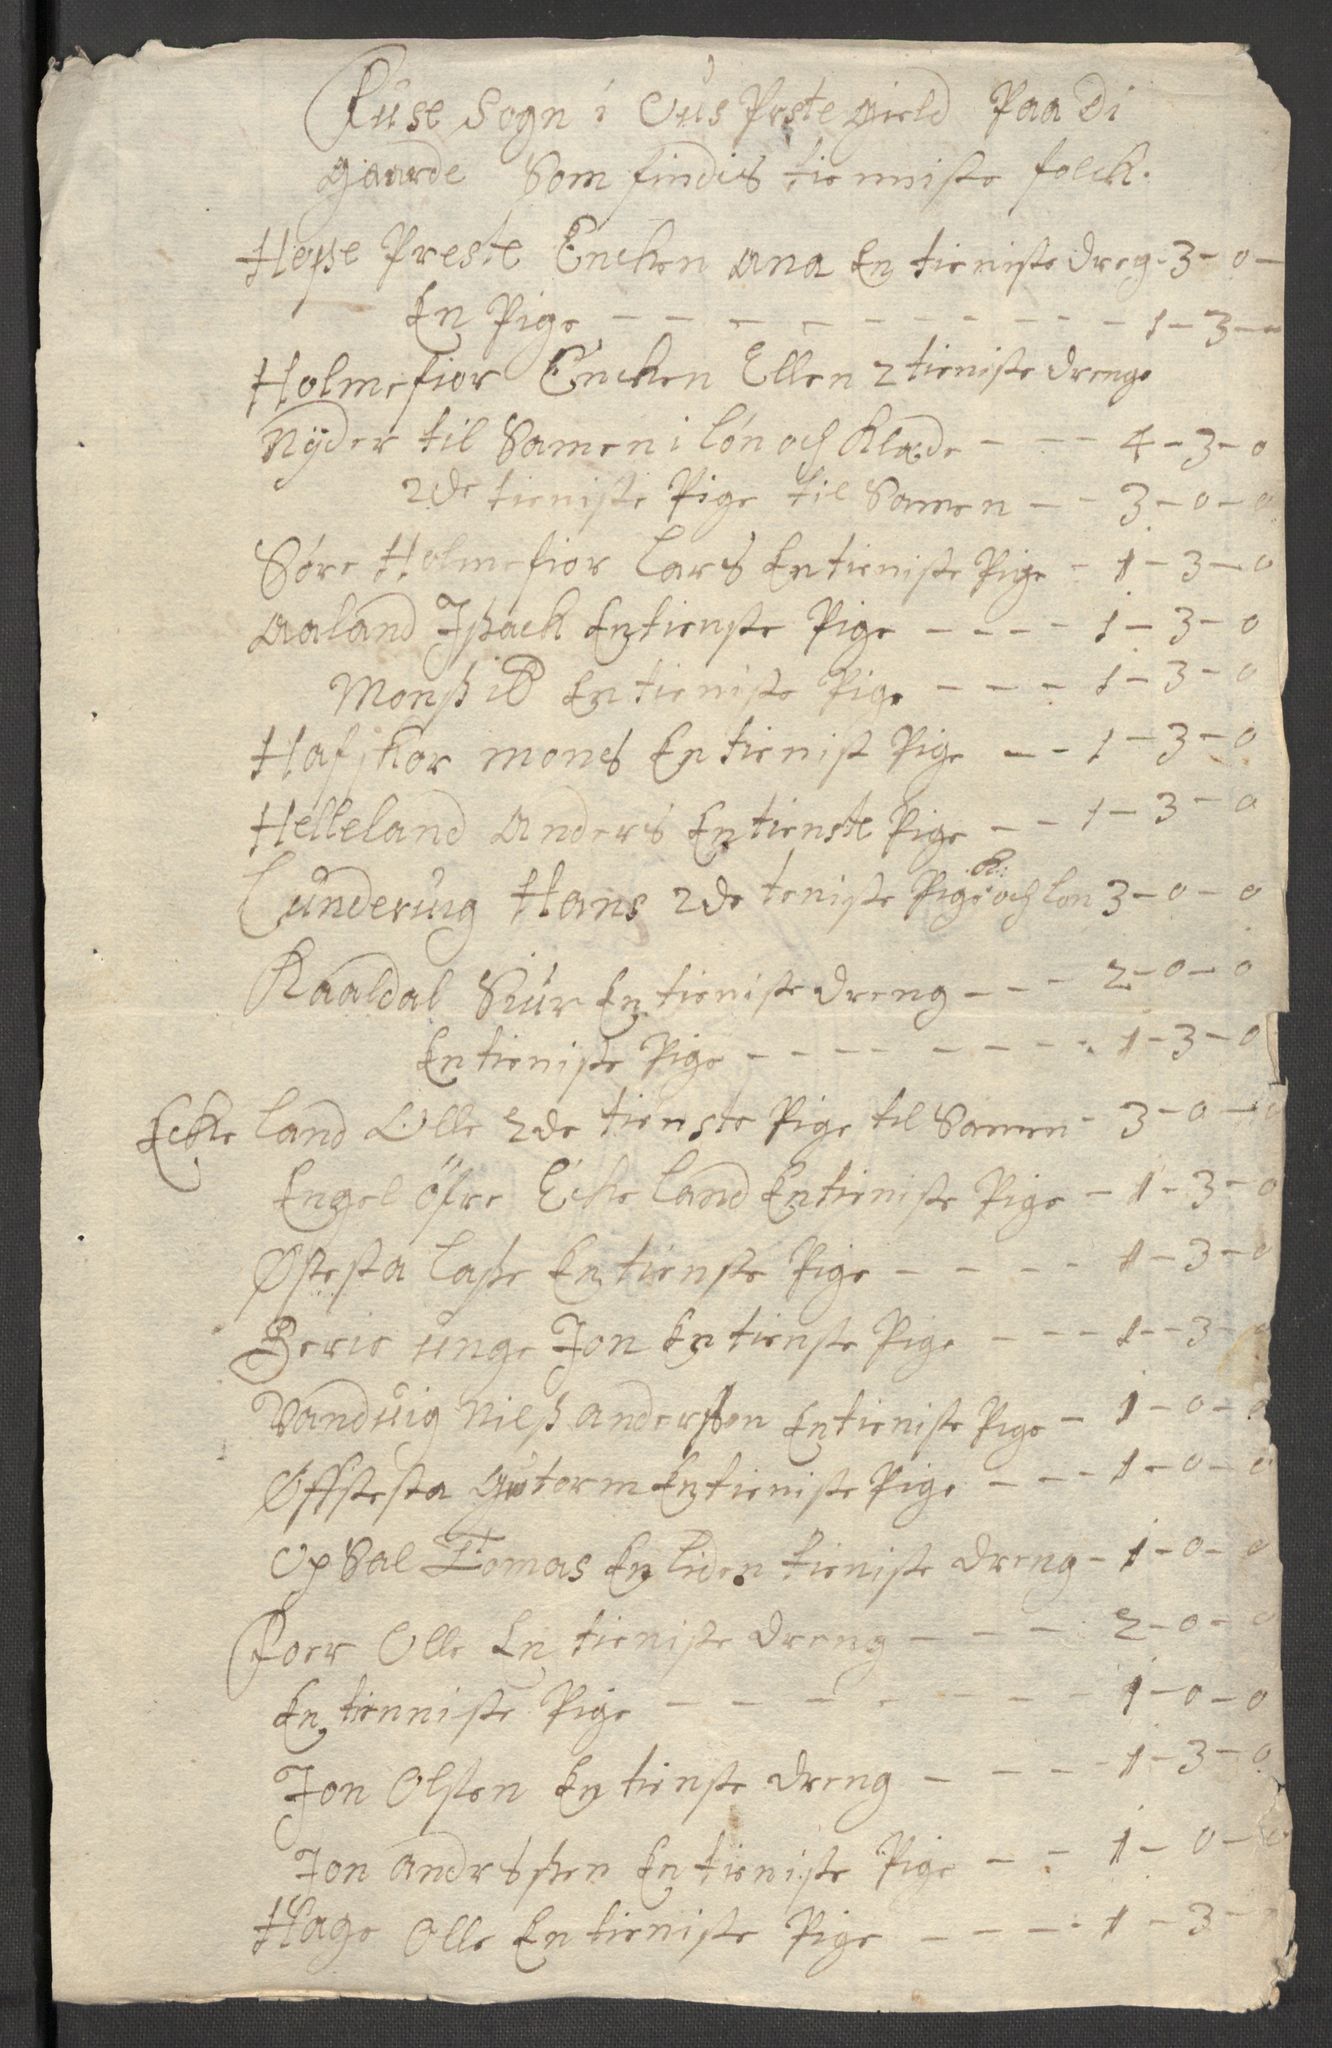 Fuse Sogn i Ous Prste gield Paa Di
gaarde Som findis tienniste folck.
Hope Preste Encken Ana En tieniste dreg - 3 - 0 -
En Pige - - - - - - - - - - 1 - 3 -
Holmefior Encken Ellen 2 tieniste drenge
Nyder til Samen i lón och Klæde - - - 4 - 3 - 0
2de tieniste Pige til Samen - - 3 - 0 - 0
Sóre Holmefior Lars En tieniste Pige - 1 - 3 - 0
Aaland Jsßack En tienste Pige - - - - 1 - 3 - 0
Monß iB En tieniste Pige - - - 1 - 3 - 0
Hafskor mons En tienist Pige - - 1 - 3 - 0
Helleland Anders En tienste Pige - - 1 - 3 - 0
Lunderuig Hans 2de teniste Pige K: och lon 3 - 0 - 0
Kaaldal Siur En tieniste dreng - - - 2 - 0 - 0
En tieniste Pige - - - - - - - - 1 - 3 - 0
Ecke land Olle 2de tienste Pige til Samen - 3 - 0 - 0
Engel öfre Ecke land En tieniste Pige - 1 - 3 - 0
Østesta Laße En tienste Pige - - - - 1 - 3 - 0
Berie unge Jon En tienste Pige - - - 1 - 3 - 0
Vanduig Nielß anderßen En tieniste Pige - 1 - 0 - 0
Øffstesta Gutorm En tieniste Pige - - - 1 - 0 - 0
Op Sal Tomas En liden tieniste dreng - 1 - 0 - 0
Foer Olle En tieniste dreng - - - 2 - 0 - 0
En tienniste Pige - - - - - - - 1 - 0 - 0
Jon Olsten En tienste dreng - - - - 1 - 3 - 0
Jon andrsßen En tieniste Pige - - 1 - 0 -
Hage Olle En tieniste Pige - - - - 1 - 3 -